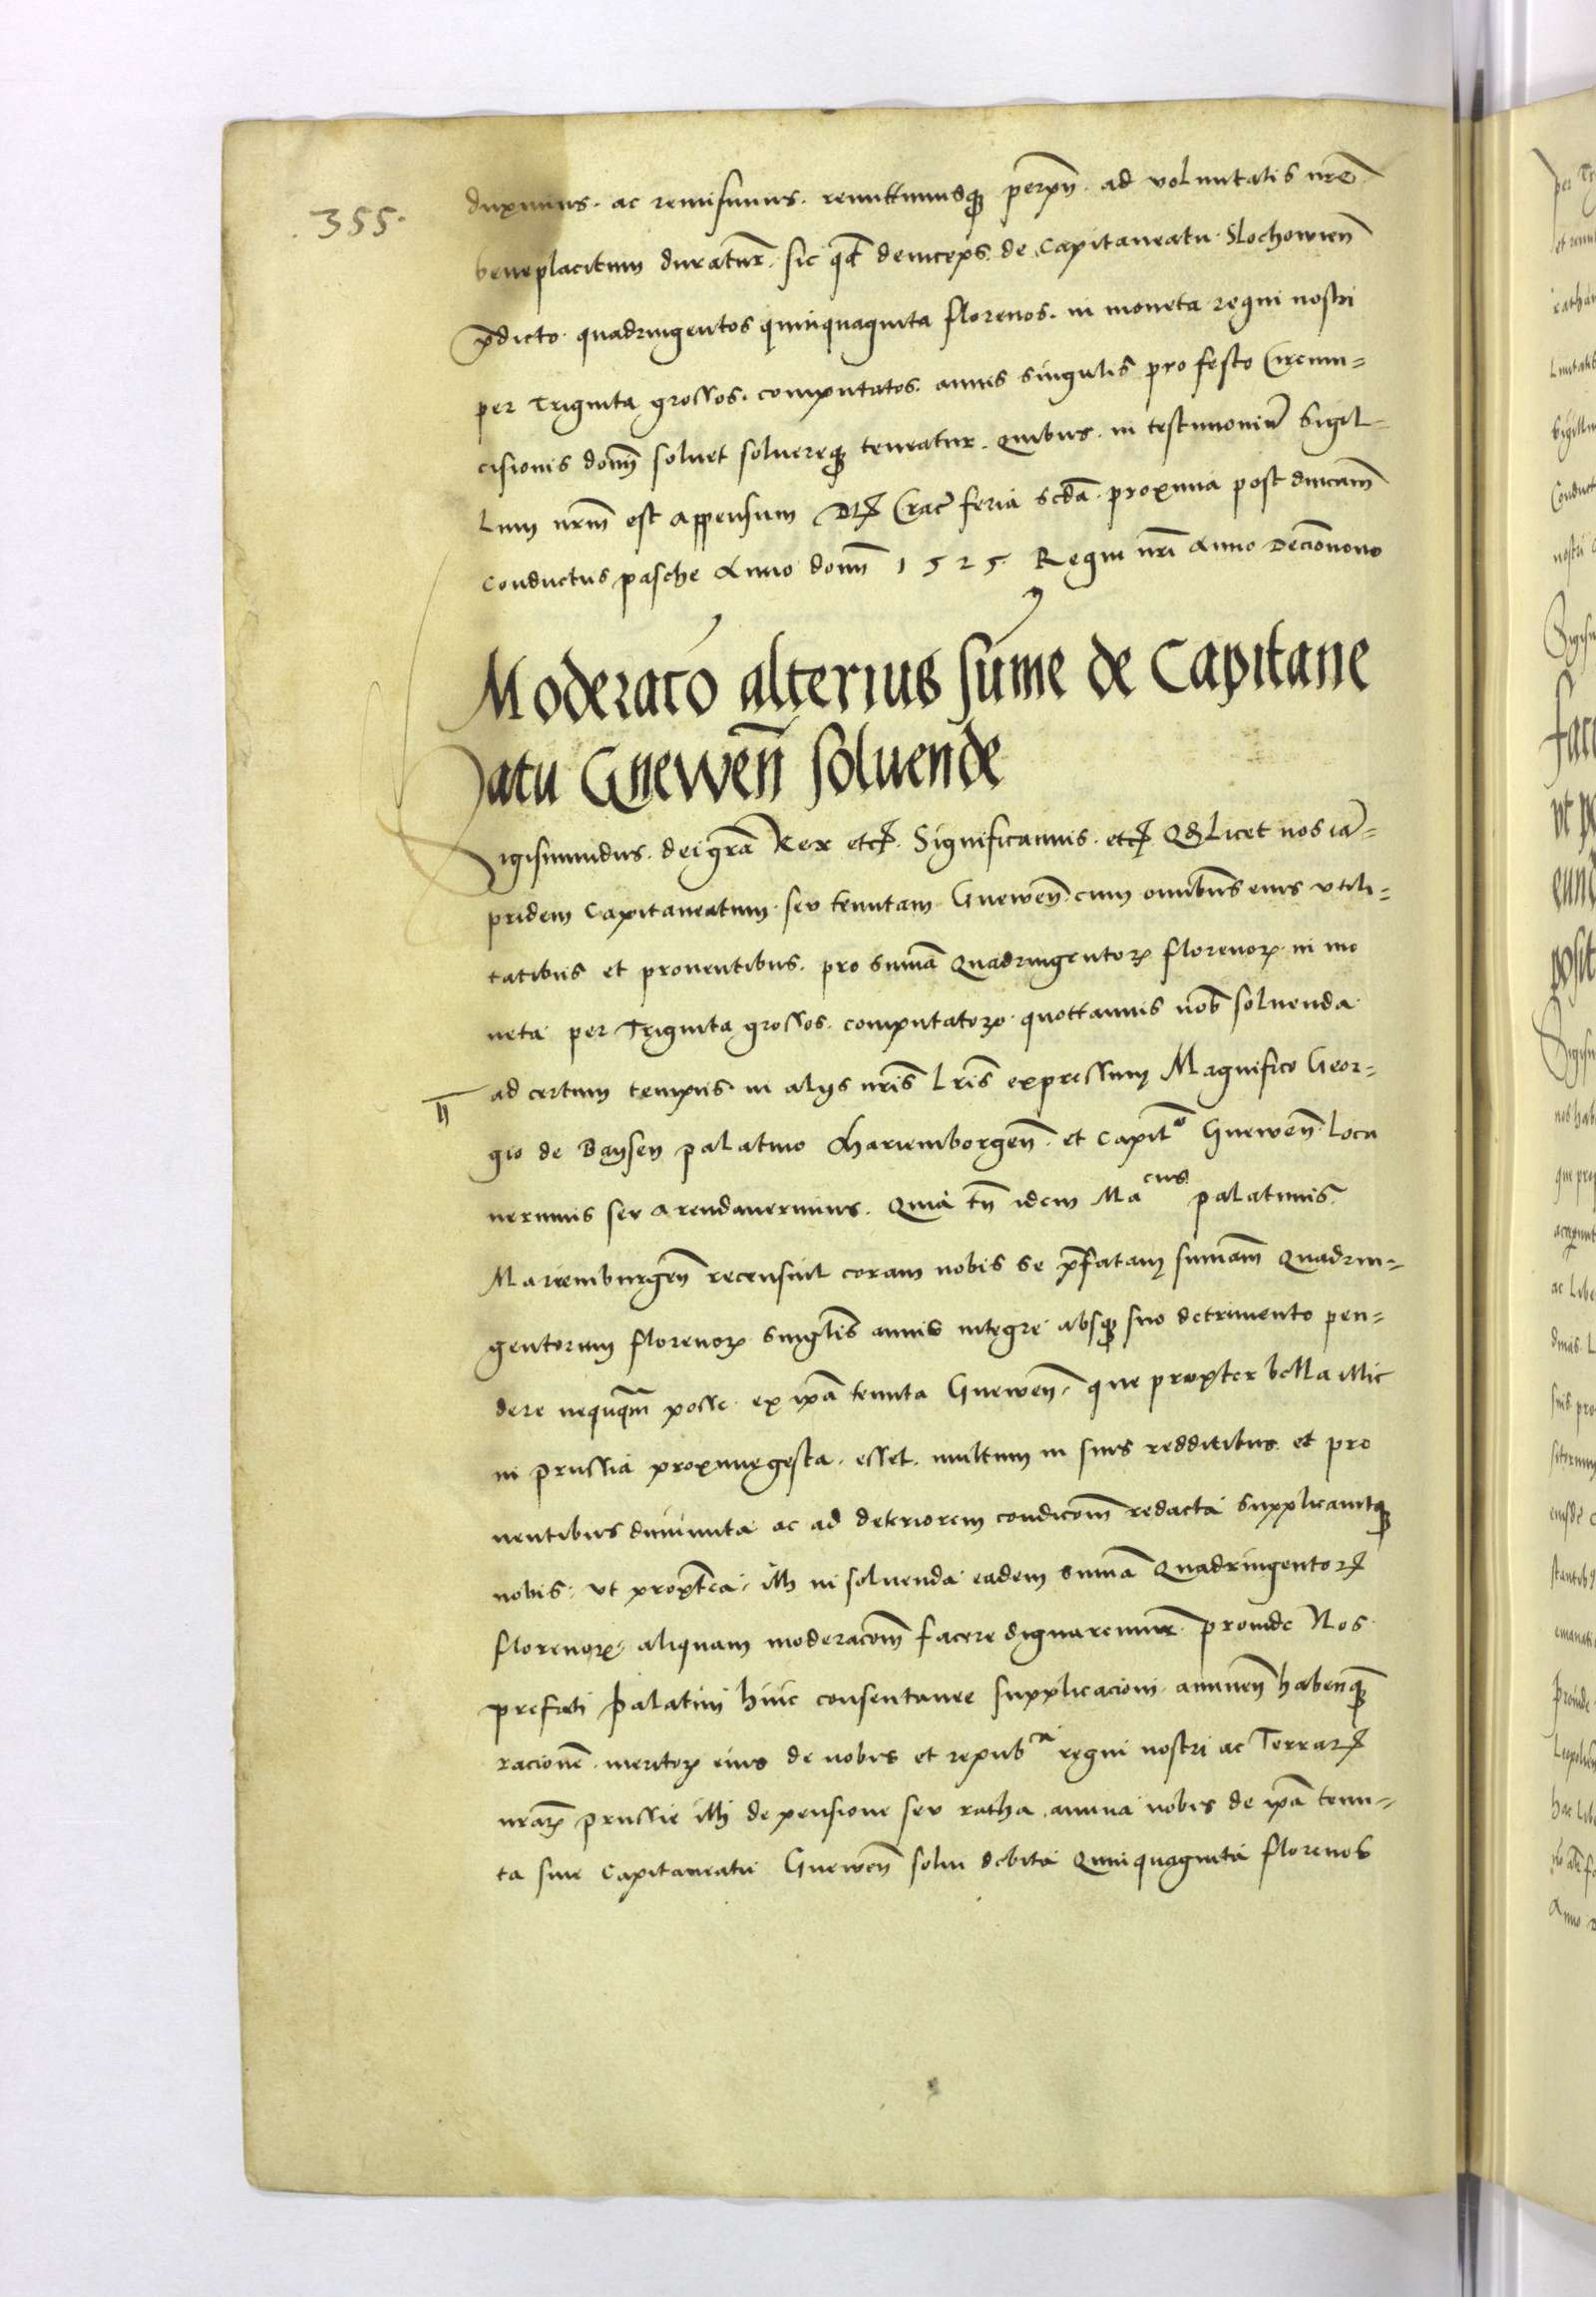 .355.
duximus. ac remisimus. remittimusq per p̄n. ad voluntatis nr̄e
beneplacitum duratur̄. sic qd̄ deinceps. de Capitaneatu. Slochowien̄
p̄dicto. quadringentos quinquaginta florenos. in moneta regni nostri
per Triginta grossos. computatos. annis singulis pro festo Circum-
cisionis domī soluet soluereq teneatur. Quibus. in testimoniū Sigil-
lum nrm̄ est appensum Dat Crac̄ feria scd̄a. proxima post dnicam̄
Conductus pasche Anno domī 1525 Regni nrī Anno Decīonono
Moderacō alterius sum̄e de Capitane
atu Gnewen̄ soluende
Sigismundus. dei gr̄a Rex etc. Significamus. etc Qd Licet nos iā-
pridem Capitaneatum. seu tenutam Gnewen̄ cum omībus eius vtili-
tatibus et prouentibus. pro sum̄a Quadringentorꝝ florenorꝝ in mo
neta per Triginta grossos. computatorꝝ. quottannis nob̄ soluenda
ad certum tempus. in alijs nrīs lrīs expressum Magnifico Geor-
II
gio de Baysen palatino Mariemborgen̄. et Capit̄o Gnewen̄ Loca
uerimus seu arendauerimus. Quia tn̄ idem Ma cus palatinus
Mariemburgen̄ recensuit coram nobis se p̄fatam sum̄am Quadrin-
gentorum florenorꝝ singlīs annis integre absq suo detrimento pen-
dere nequq̄m posse. ex ip̄a tenuta Gnewen̄. que propter bella illic
in Prussia proxime gesta. esset. multum in suis redditibus. et pro
uentibus diminuta ac ad deteriorem condicōm redacta supplicauitq
nobis. vt propt̄ea. illi in soluenda eadem sum̄a Quadringentorꝝ
florenorꝝ. aliquam moderacōm facere dignaremur. proinde Nos
prefati Palatini huic consentanee supplicacioni. annuen̄ habenq̄
racionē. meritorꝝ eius de nobis et repub ca regni nostri ac Terrarꝝ
nrarꝝ Prussie illi de pensione seu ratha annua nobis de ip̄a tenu-
ta siue Capitaneatu Gnewen̄ solui debita Quinquaginta florenos